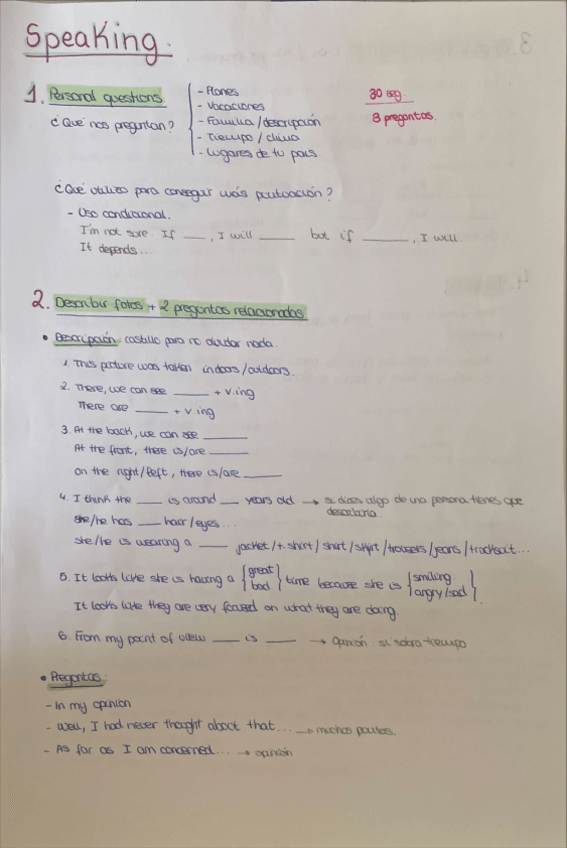 Speaking.
1. Personal questions.
¿Qué nos preguntan?
- Planes
- Vacaciones
- Familia / descripción
- Tiempo / clima
- Lugares de tu país.
30 seg
8 preguntas.
¿Qué utilizo para conseguir más puntuación?
- Uso condicional.
I'm not sure If ___, I will ___ but if ___, I will.
It depends...
2. Describir fotos + 2 preguntas relacionadas
• Descripción: castillo para no olvidar nada.
1. This picture was taken indoors / outdoors.
2. There, we can see ___ + v.ing
There are ___ + v.ing
3. At the back, we can see ___
At the front, there is/are ___
on the right/left, there is/are ___
4. I think the ___ is around ___ years old → si dices algo de una persona tienes que
describirla.
she/he has ___ hair / eyes...
she/he is wearing a ___ jacket / t-shirt / shirt / skirt / trousers / jeans / tracksuit...
5. It looks like she is having a {great / bad} time because she is {smiling / angry/sad}
It looks like they are very focused on what they are doing.
6. From my point of view ___ is ___ → Opinión. si sobra tiempo
• Preguntas:
- In my opinion
- Well, I had never thought about that... → muchos puntos.
- As far as I am concerned... → opinión